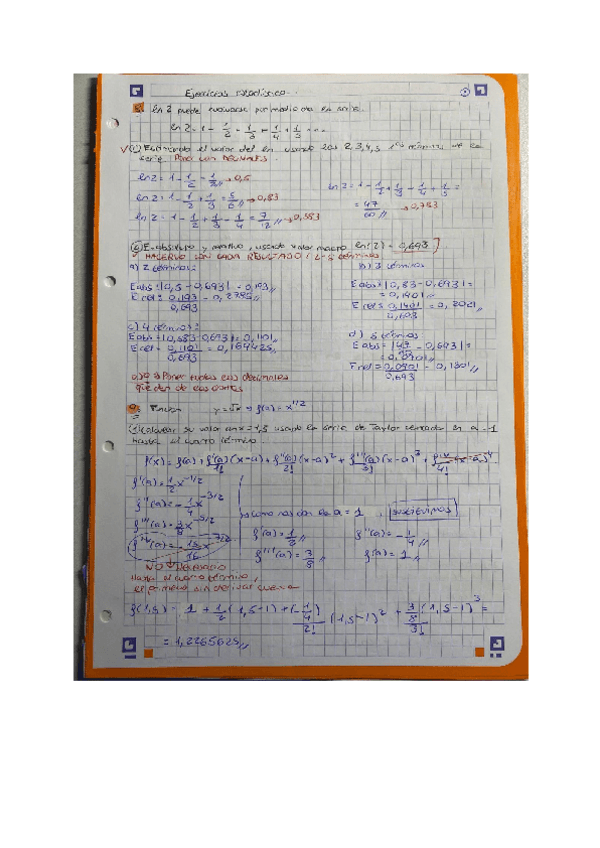 Ejercicios
8. ln 2 puede evaluarse por medio de la serie:
ln 2 = 1 - 1/2 + 1/3 - 1/4 + 1/5 ...
usando los 2, 3, 4, 5 términos de la
serie. Poner con decimales.
ln 2 = 1 - 1/2 = 1/2 → 0,5
ln 2 = 1 - 1/2 + 1/3 = 5/6 → 0,83
ln 2 = 1 - 1/2 + 1/3 - 1/4 = 7/12 → 0,583
ln 2 = 1 - 1/2 + 1/3 - 1/4 + 1/5 =
= 47/60 → 0,783
E. absoluto y relativo, usando valor ln(2) = 0,693
HACERLO CON CADA RESULTADO
a) 2 términos:
Eabs = |0,5 - 0,693| = 0,193
Erel = 0,193/0,693 = 0,2785
b) 3 términos
Eabs = |0,83 - 0,693| =
= 0,1401
Erel = 0,1401/0,693 = 0,2021
c) 4 términos:
Eabs = |0,583 - 0,693| = 0,1101
Erel = 0,1101/0,693
d) 5 términos:
Eabs = |47/60 - 0,693| =
= 0,0901
Erel = 0,0901/0,693 = 0,1301
Poner todos los decimales
que den de los
9. y = √x → f(x) = x^1/2
Calcular su valor en x = 1,5 usando la serie de Taylor centrada en a = 1
hasta el cuarto término.
f(x) = f(a) + f'(a)/1! (x-a) + f''(a)/2! (x-a)² + f'''(a)/3! (x-a)³ +
f'(a) = 1/2 x^-1/2
f''(a) = -1/4 x^-3/2
f'''(a) = 3/8 x^-5/2
f^IV(a) = -15/16 x^-7/2
como nos dan a = 1
SUSTITUIMOS
f'(a) = 1/2
f''(a) = -1/4
f'''(a) = 3/8
f(a) = 1
NO NECESARIO
Hasta el cuarto término,
el primero sin derivar cuenta
f(1,5) = 1 + 1/2 (1,5-1) + (-1/4)/2! (1,5-1)² + 3/8/3! (1,5-1)³ =
= 1,2265625